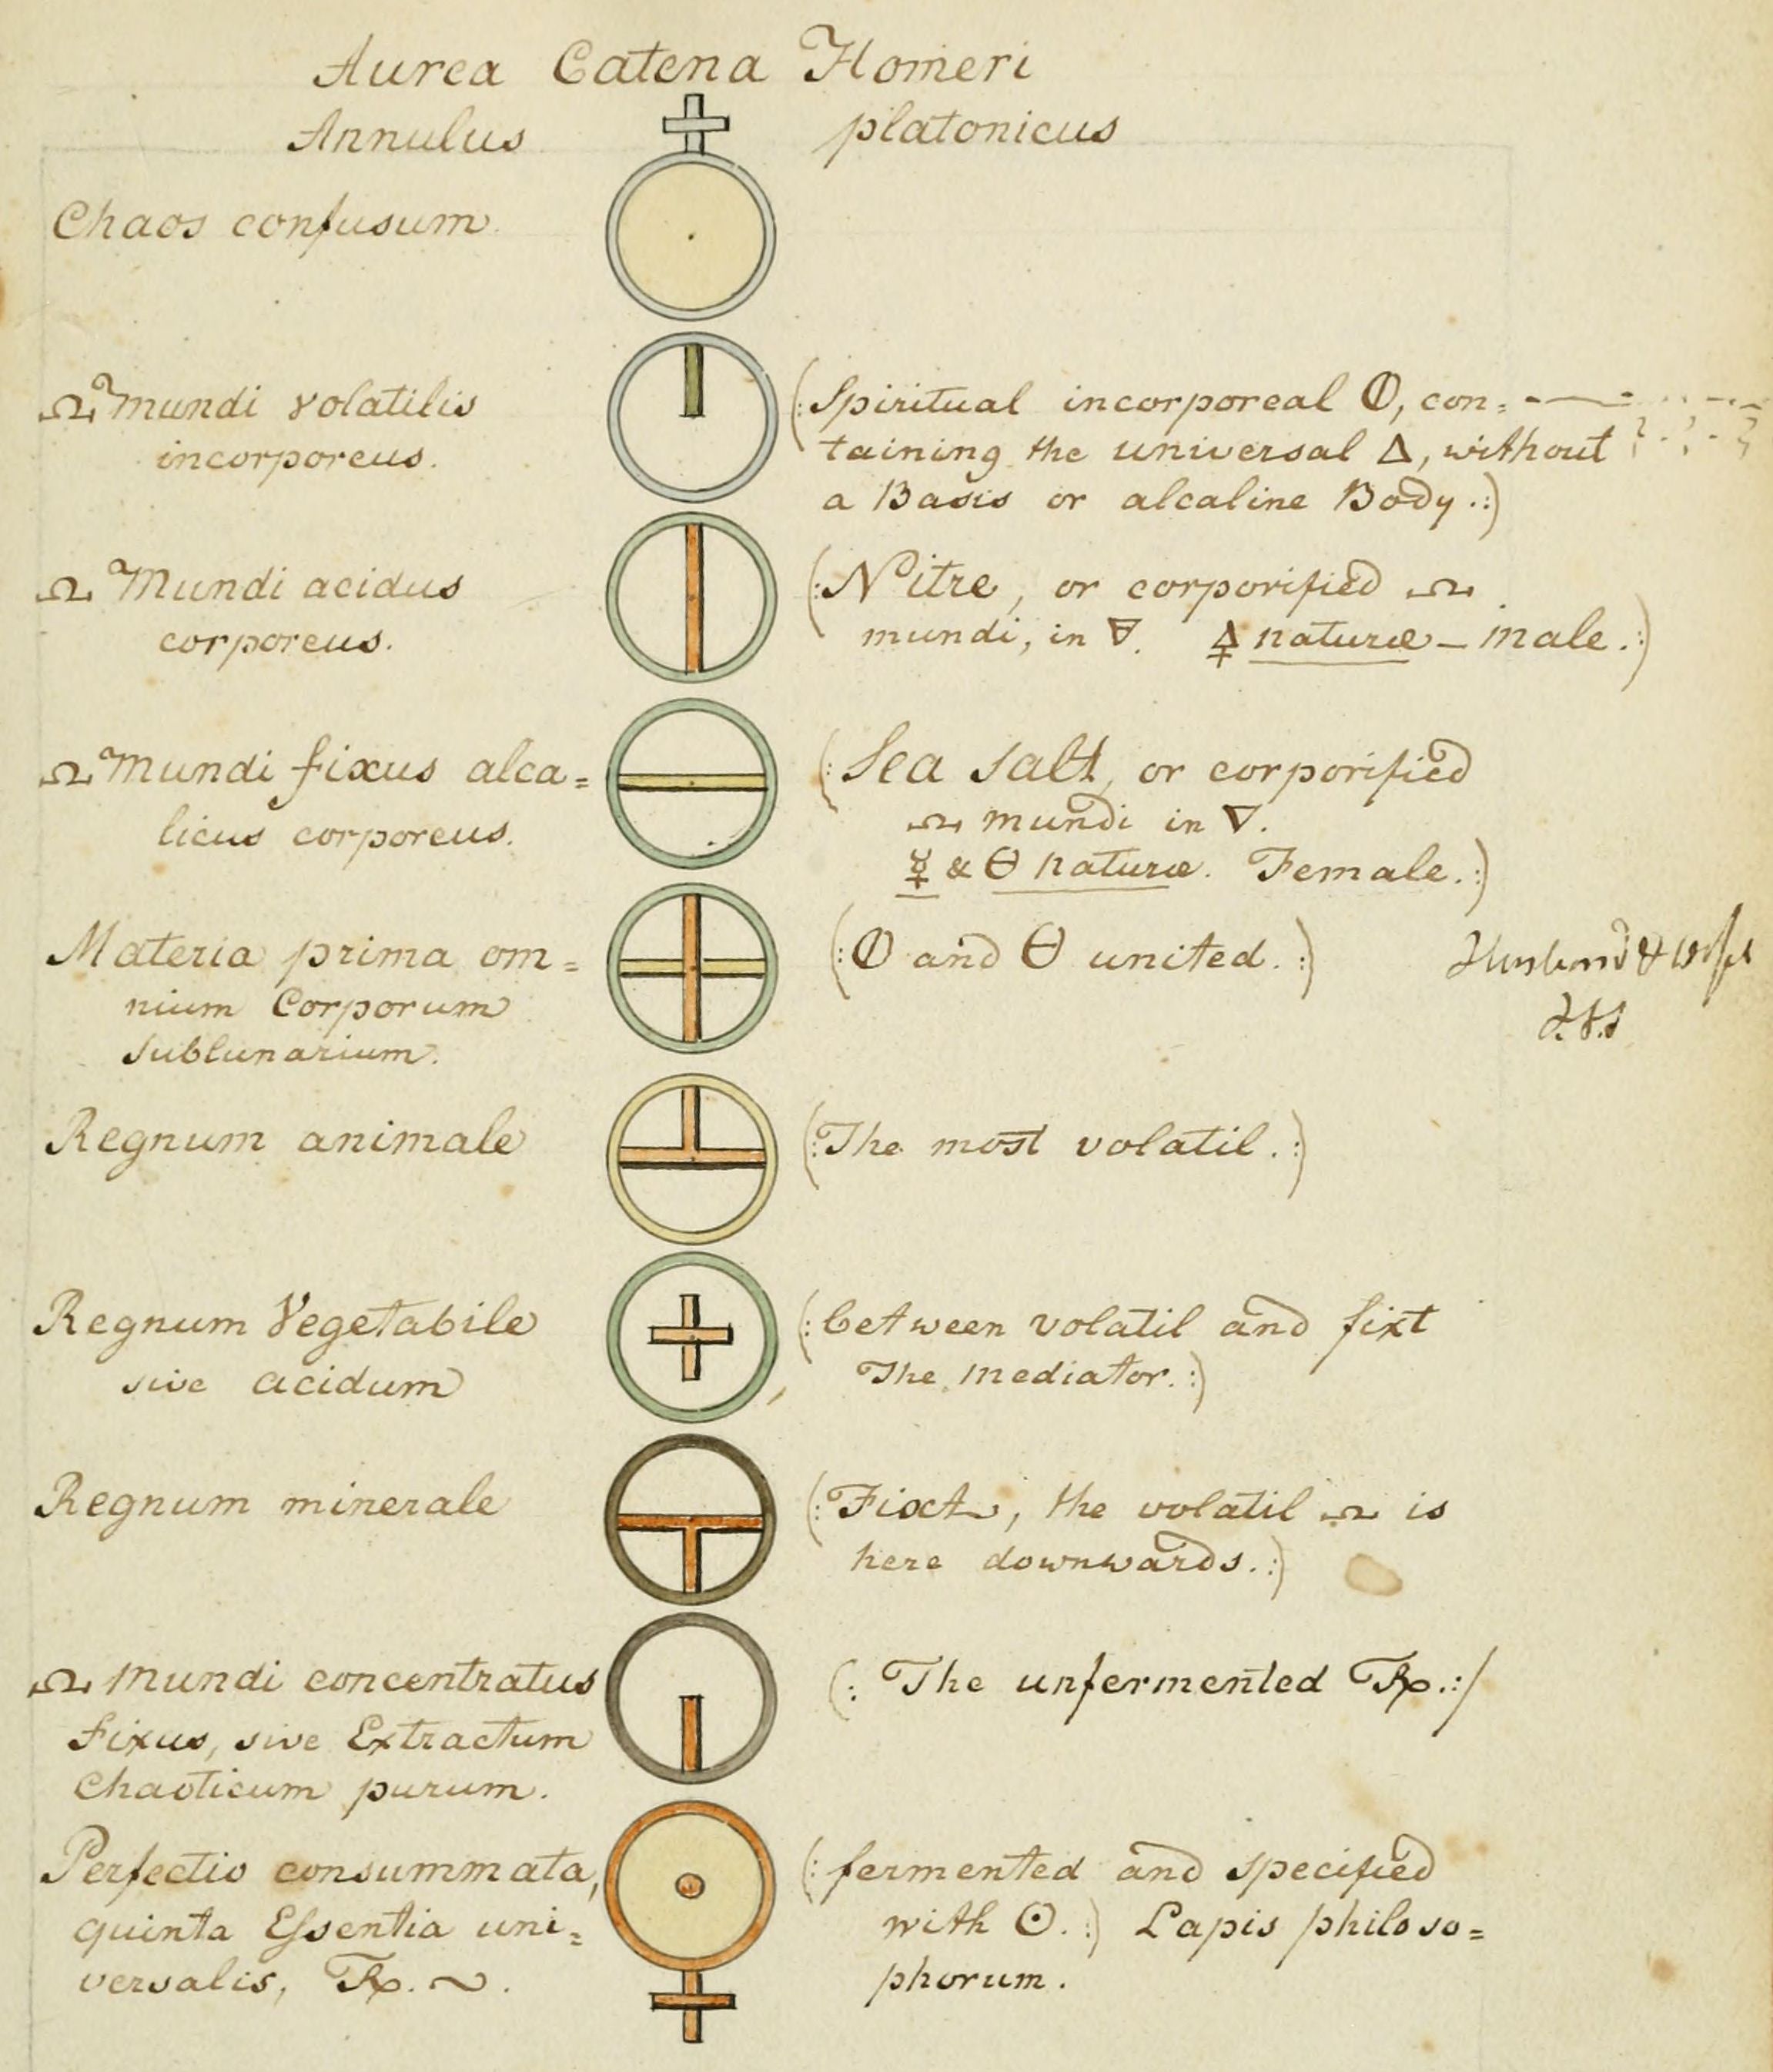 Aurea Catena Homeri
Annulus platonicus
Chaos confusum
🝞 Mundi volatilis
incorporeus.
(: Spiritual incorporeal 🜕, con=
taining the universal △, without
a Basis or alcaline Body. :)
🝞 Mundi acidus
corporeus.
(: Nitre, or corporified 🝞
mundi, in 🜃. 🜍 naturæ – male. :)
🝞 Mundi fixus alca=
licus corporeus.
(: Sea Salt, or corporified
🝞 mundi in ▽.
☿ & 🜔 naturæ. Female. :)
Materia prima om=
nium Corporum
sublunarium.
(: 🜕 and 🜔 united. :)
Husband & Wife
Regnum animale
(: The most volatil. :)
Regnum Vegetabile
sive acidum
(: between volatil and fixt
The mediator. :)
Regnum minerale
(: Fixt, the volatil 🝞 is
here downwards. :)
🝞 Mundi concentratus
fixus, sive Extractum
Chaoticum purum.
(: The unfermented Rx. :)
Perfectio consummata,
quinta Essentia uni=
versalis, Rx. ~.
(: fermented and specified
with ☉. :) Lapis philoso=
phorum.